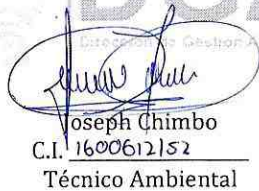 Dirección de Gestión A
Joseph Chimbo
C.I. 1600612152
Técnico Ambiental